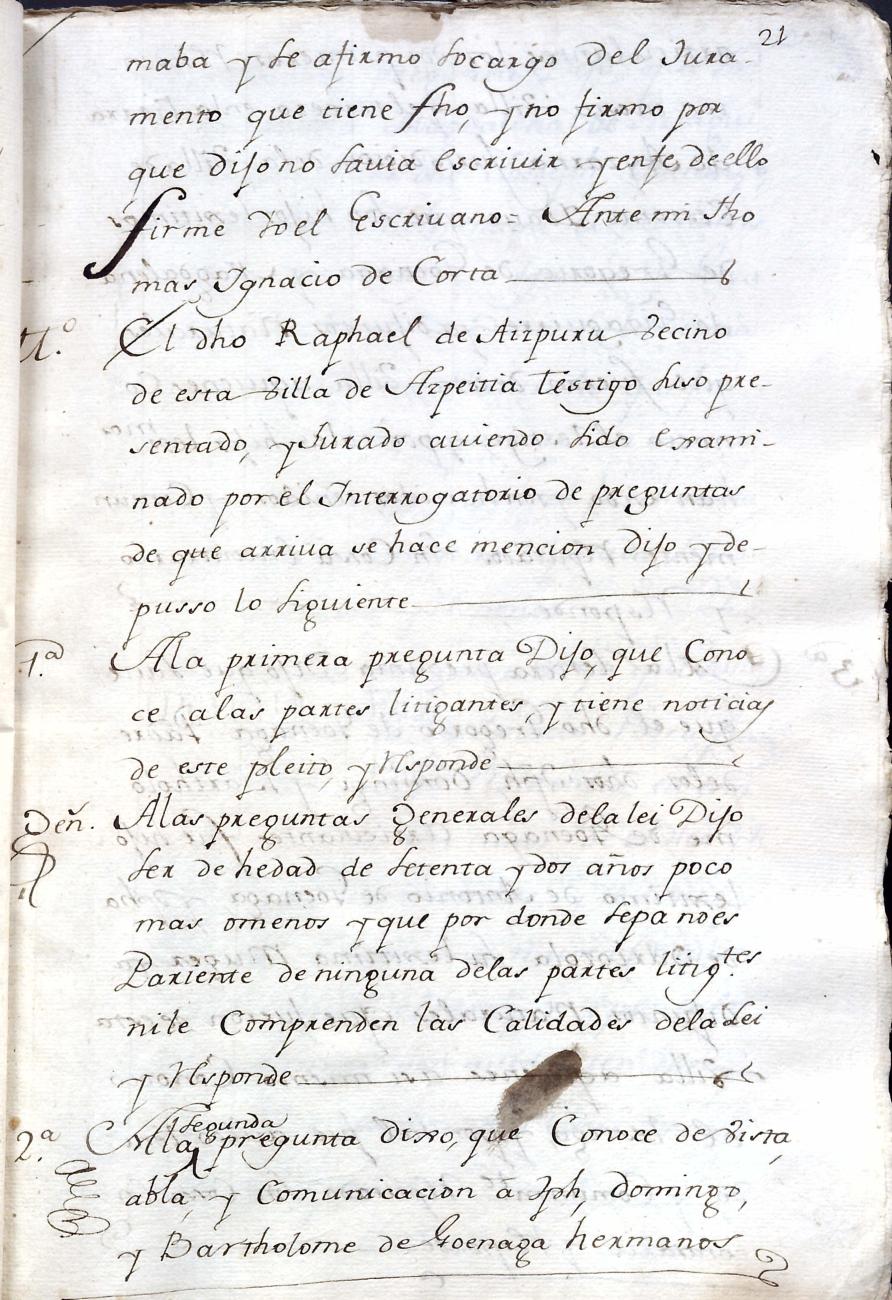 21
maba y se afirmo socargo del Jura-
mento que tiene fho, y no firmo por
que dijo no savia escrivir y enfe de ello
firme Yo el Escrivano = Ante mi Tho
mas Ignacio de Corta
tt.º El dho Raphael de Aizpuru Vecino
de esta Villa de Azpeitia testigo suso pre-
sentado, y Jurado aviendo sido exami-
nado por el Interrogatorio de preguntas
de que arriva se hace mencion dijo y de-
pusso lo siguiente
1.ª A la primera pregunta Dijo, que Cono
ce alas partes litigantes, y tiene noticias
de este pleito, y Responde
Gen. Alas preguntas Generales dela lei Dijo
ser de hedad de setenta y dos años poco
mas omenos y que por donde sepa noes
Pariente de ninguna delas partes litig.tes
nile Comprenden las Calidades dela Lei
y Responde
2.ª Ala segunda pregunta dixo, que Conoce de vista,
abla, y Comunicacion á Jph, Domingo,
y Bartholome de Goenaga hermanos